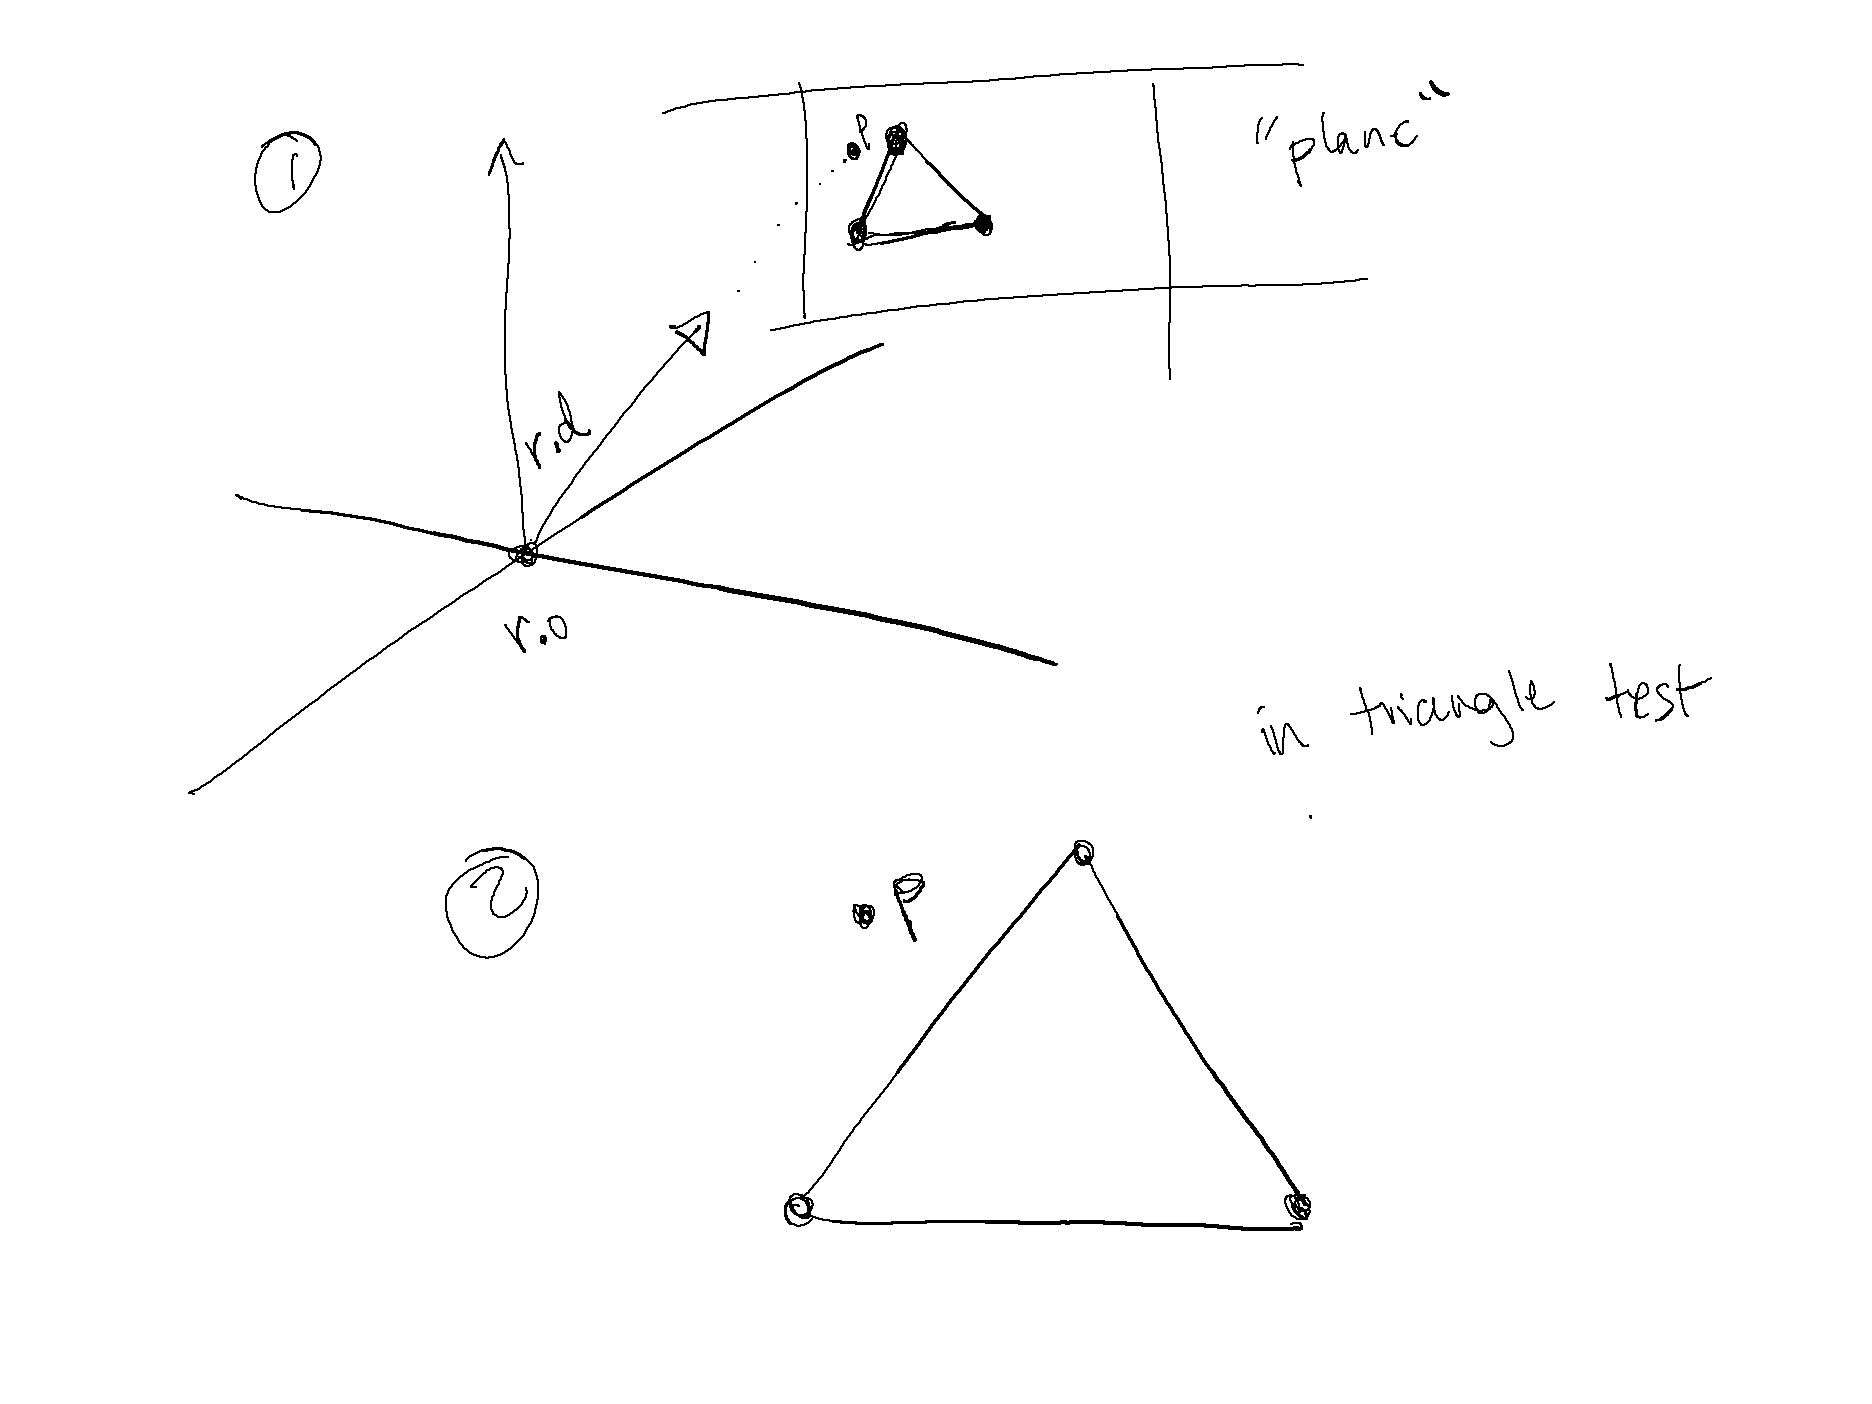 1
P
"plane"
r.d
r.o
in triangle test
2
P